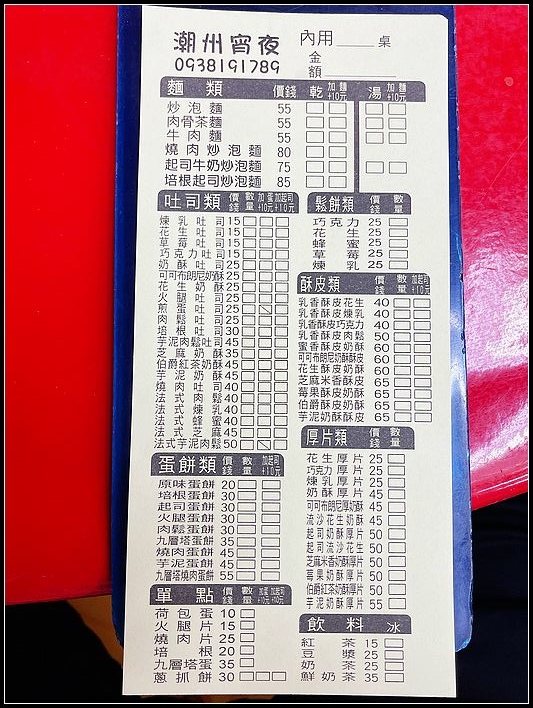 潮州宵夜
0938191789
內用____桌
金額________
麵類 價錢 乾 加麵+10元 湯 加麵+10元
炒泡麵 55
肉骨茶麵 55
牛肉麵 55
燒肉炒泡麵 80
起司牛奶炒泡麵 75
培根起司炒泡麵 85
吐司類 價錢 數量 加蛋+10元 加起司+10元
煉乳吐司 15
花生吐司 15
草莓吐司 15
巧克力吐司 15
奶酥吐司 25
可可布朗尼奶酥 25
花生奶酥 25
火腿吐司 25
煎蛋吐司 25
肉鬆吐司 25
培根吐司 30
芋泥肉鬆吐司 45
芝麻奶酥 35
伯爵紅茶奶酥 45
芋泥奶酥 45
燒肉吐司 40
法式肉鬆 40
法式煉乳 40
法式蜂蜜 40
法式芝麻 45
法式芋泥肉鬆 50
蛋餅類 價錢 數量 加起司+10元
原味蛋餅 20
培根蛋餅 30
起司蛋餅 30
火腿蛋餅 30
肉鬆蛋餅 30
九層塔蛋餅 35
燒肉蛋餅 45
芋泥蛋餅 45
九層塔燒肉蛋餅 55
單點 價錢 數量 加蛋+10元 加起司+10元
荷包蛋 10
火腿片 15
燒肉片 25
培根 20
九層塔蛋 35
蔥抓餅 30
鬆餅類 價錢 數量
巧克力 25
花生 25
蜂蜜 25
草莓 25
煉乳 25
酥皮類 價錢 數量 加起司+10元
乳香酥皮花生 40
乳香酥皮煉乳 40
乳香酥皮巧克力 40
乳香酥皮肉鬆 50
蜜香酥皮奶酥 60
可可布朗尼奶酥酥皮 60
花生酥皮奶酥 60
芝麻米香酥皮 65
莓果酥皮奶酥 65
伯爵酥皮奶酥 65
芋泥奶酥酥皮 65
厚片類 價錢 數量
花生厚片 25
巧克力厚片 25
煉乳厚片 25
奶酥厚片 45
可可布朗尼厚奶酥 45
流沙花生奶酥 45
起司奶酥厚片 50
起司流沙花生 50
芝麻米香奶酥厚片 50
莓果奶酥厚片 50
伯爵紅茶奶酥厚片 50
芋泥奶酥厚片 55
飲料 冰
紅茶 15
豆漿 25
奶茶 25
鮮奶茶 35